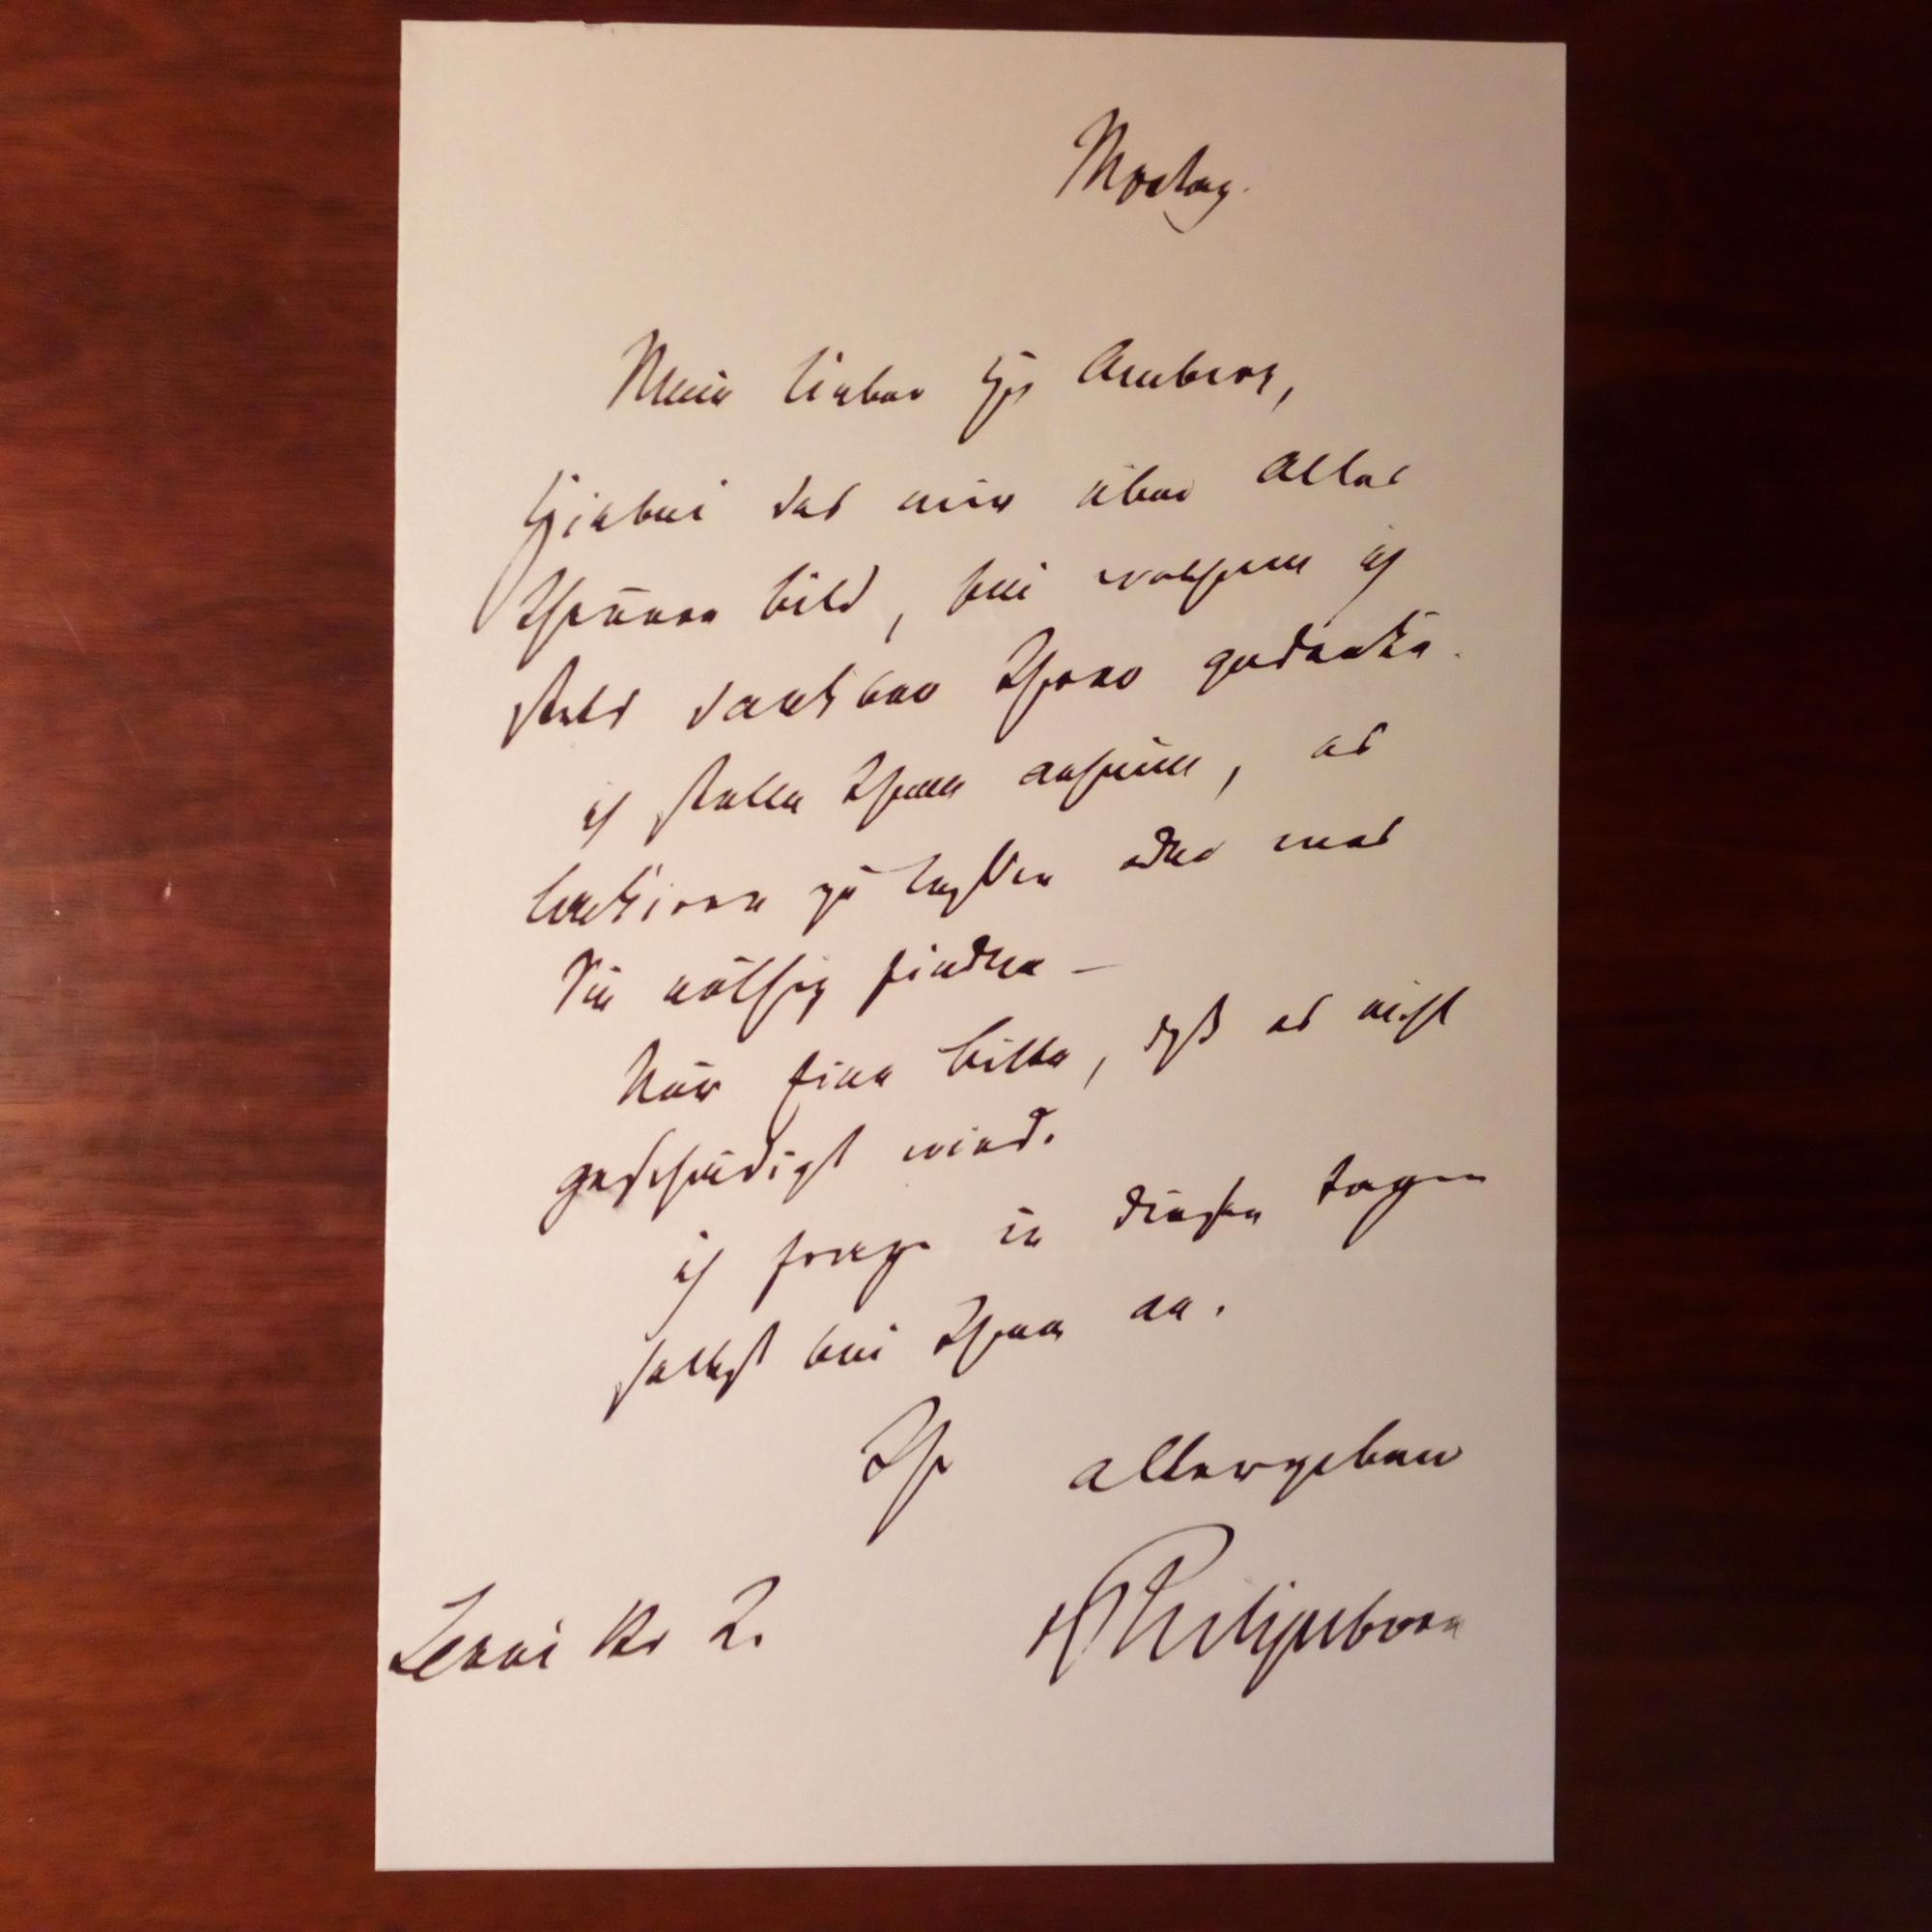 Montag.
Mein lieber Hr Amberg,
Hierbei das mir über Alles
theuere Bild, bei welchem ich
stets dankbar Ihrer gedenke.
ich stelle Ihnen anheim, es
lackiren zu lassen oder was
Sie nöthig finden –
Nur eine Bitte, daß es nicht
geschädigt wird.
ich frage in diesen Tagen
selbst bei Ihnen an.
Ihr allergeben
Lenné Str 2. Philipsborn